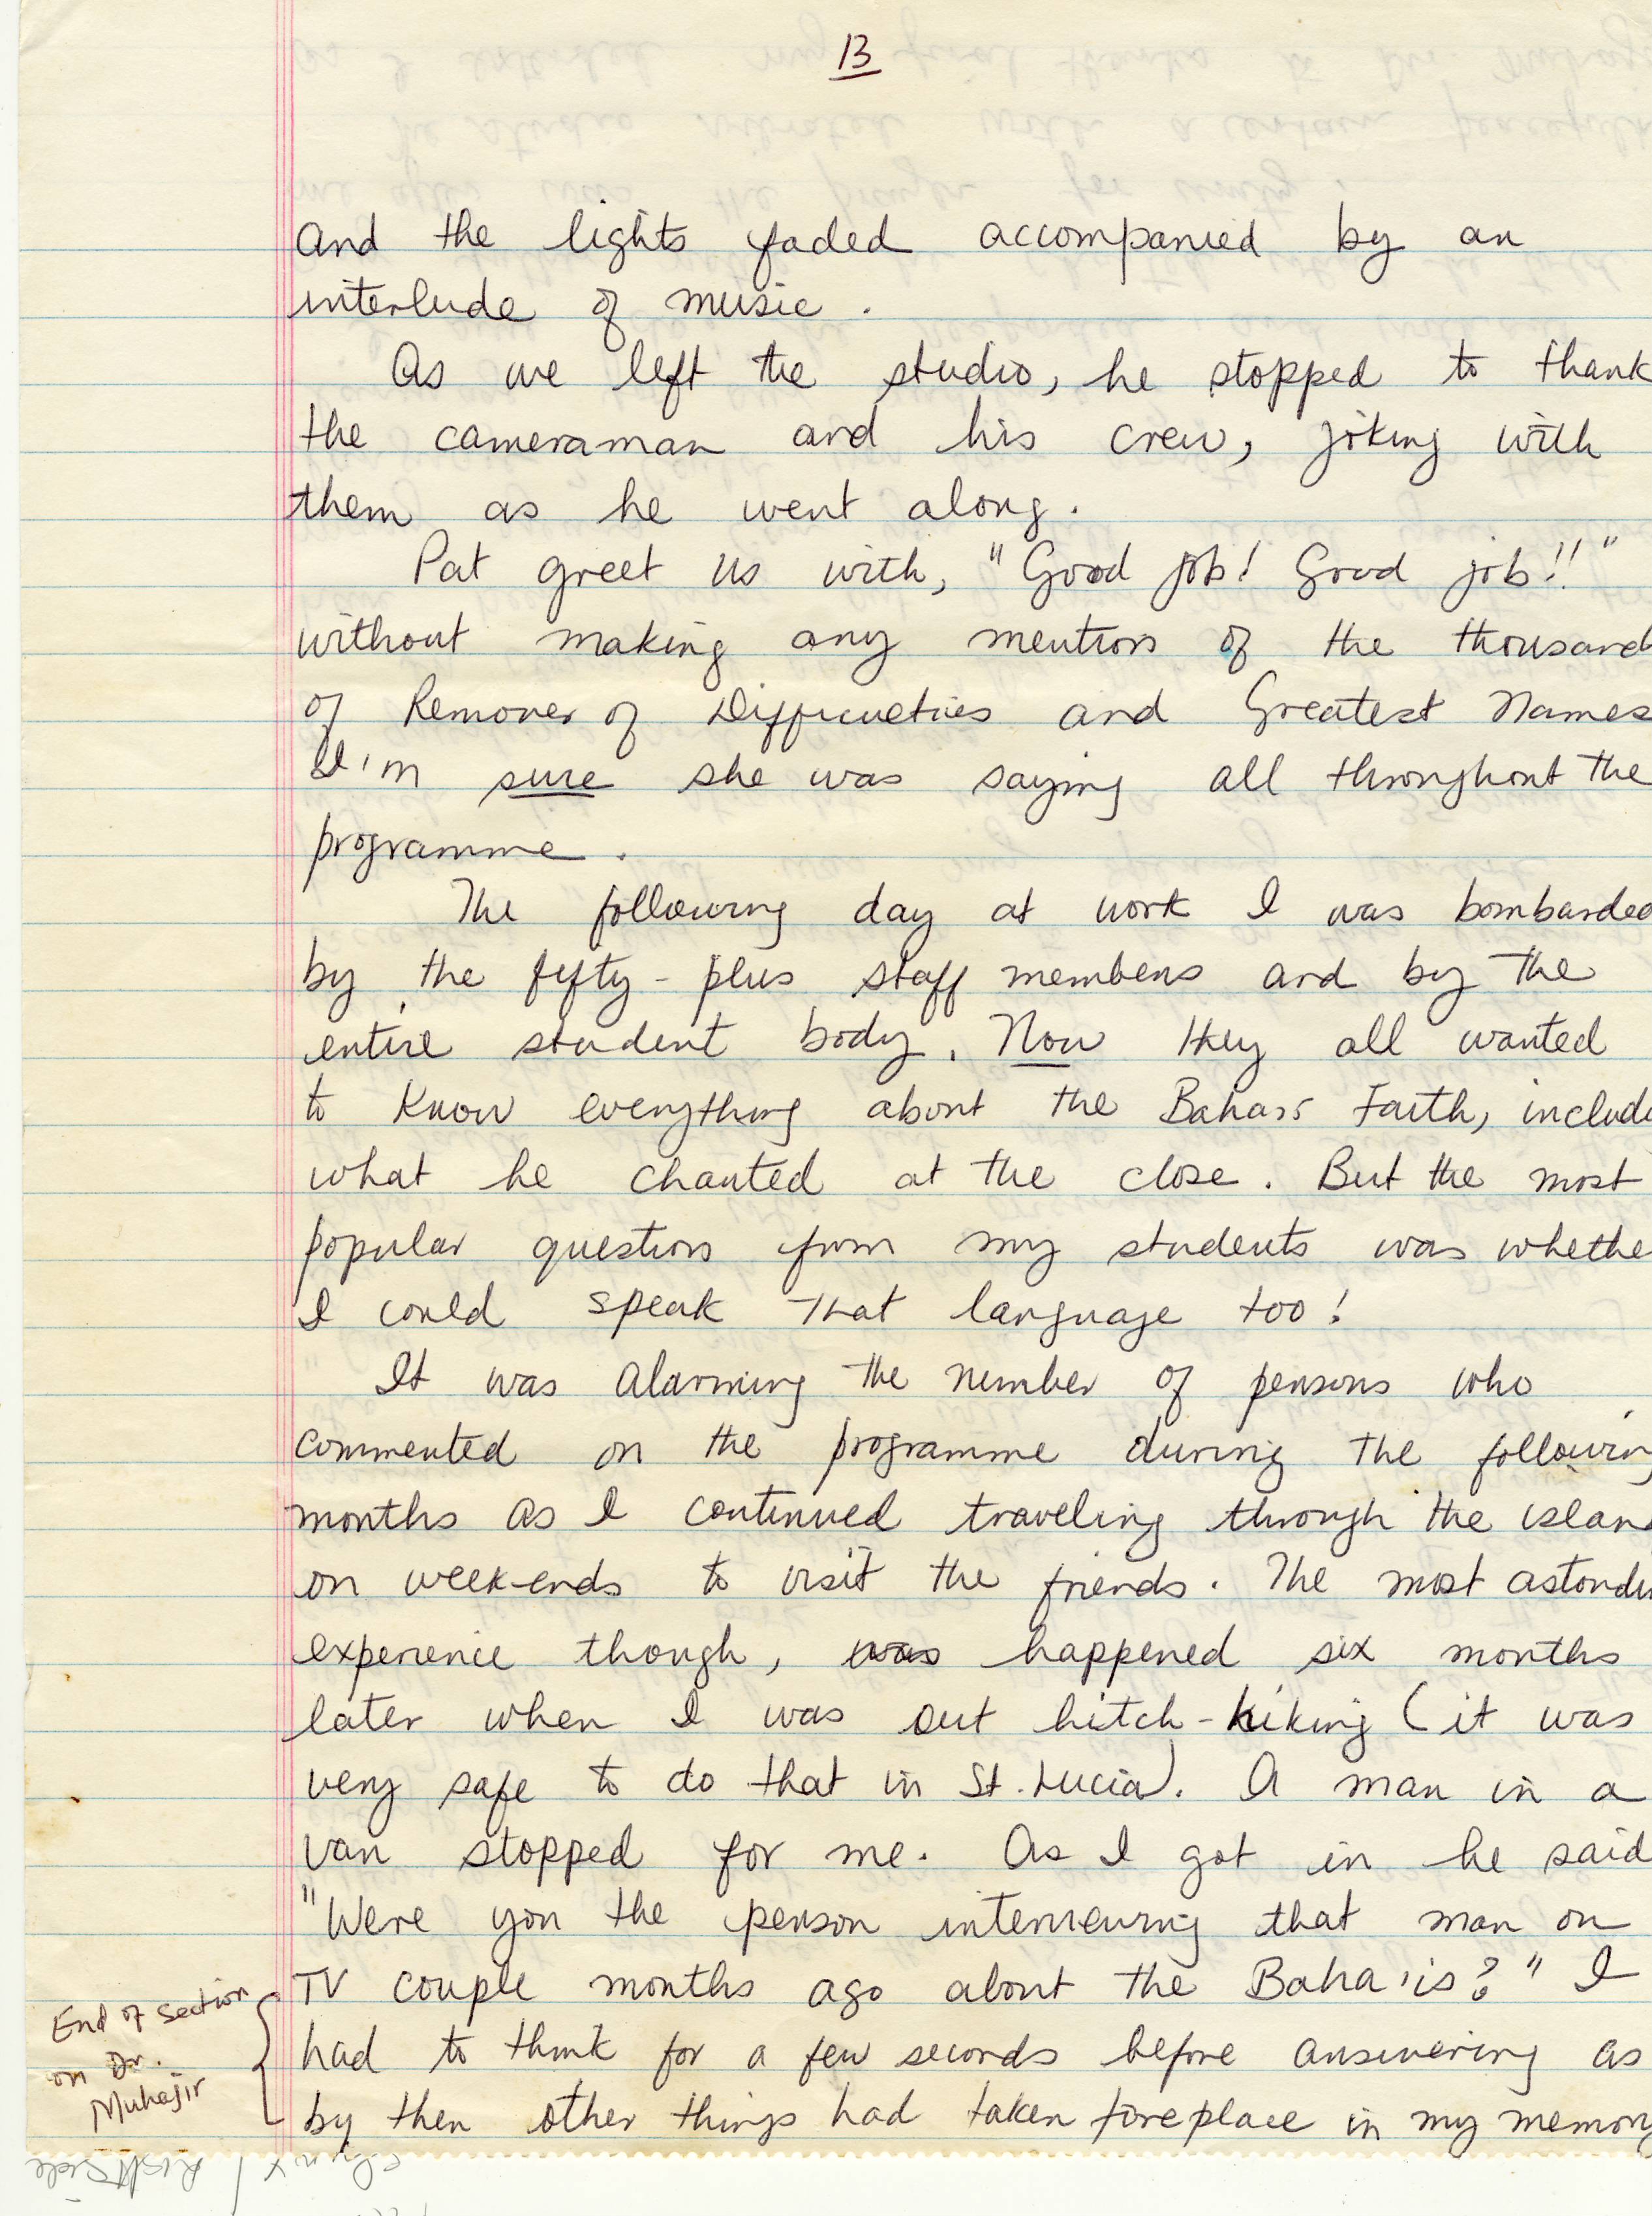 13
and the lights faded accompanied by an
interlude of music.
As we left the studio, he stopped to thank
the cameraman and his crew, joking with
them as he went along.
Pat greet us with, "Good job! Good job!!"
without making any mention of the thousand
of Remover of Difficulties and Greatest Names
I'm sure she was saying all throughout the
programme.
The following day at work I was bombarded
by the fifty-plus staff members and by the
entire student body. Now they all wanted
to know everything about the Baha'is Faith, includ
what he chanted at the close. But the most
popular question from my students was whethe
I could speak that language too!
It was alarming the number of persons who
commented on the programme during the following
months as I continued traveling through the island
on week-ends to visit the friends. The most
experience though, was happened six months
later when I was out hitch-hiking (it was
very safe to do that in St. Lucia). A man in a
van stopped for me. As I got in he said
"Were you the person interviewing that man on
TV couple months ago about the Baha'is?" I
had to think for a few seconds before answering as
by then other things had taken foreplace in my memory
End of section
on Dr.
Muhajir